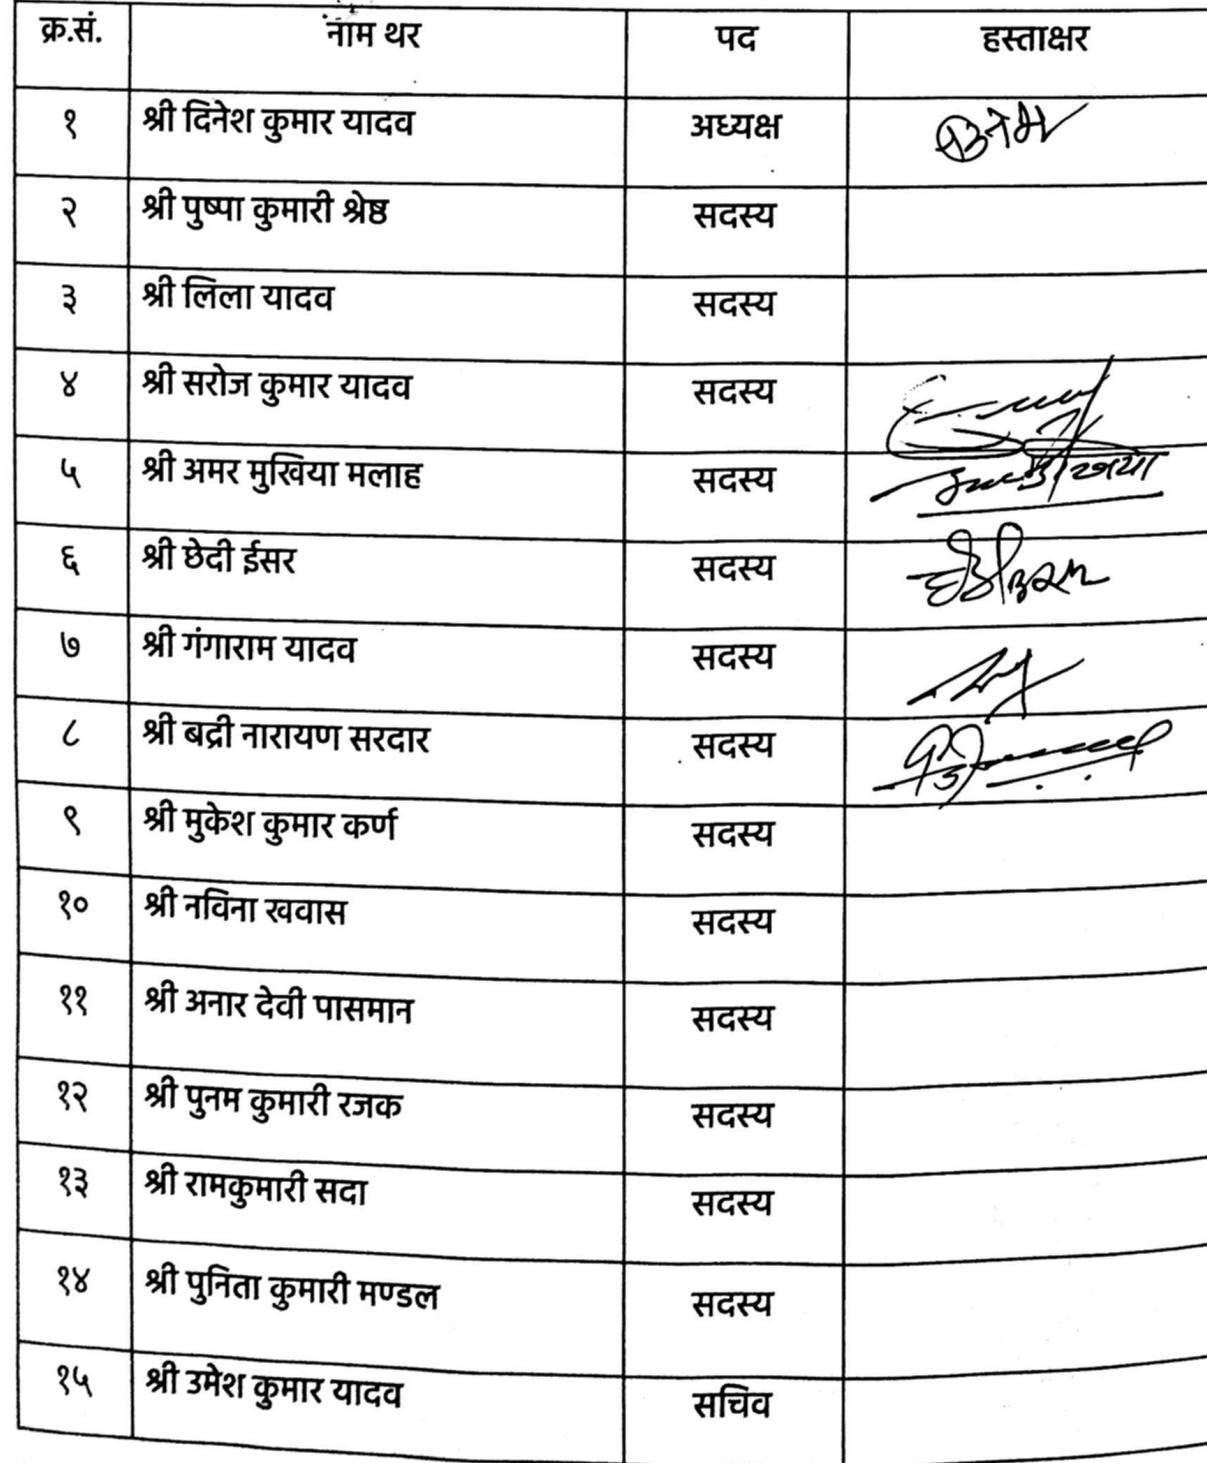 क्र.सं. नाम थर पद हस्ताक्षर
१ श्री दिनेश कुमार यादव अध्यक्ष
२ श्री पुष्पा कुमारी श्रेष्ठ सदस्य
३ श्री लिला यादव सदस्य
४ श्री सरोज कुमार यादव सदस्य
५ श्री अमर मुखिया मलाह सदस्य
६ श्री छेदी ईसर सदस्य
७ श्री गंगाराम यादव सदस्य
८ श्री बद्री नारायण सरदार सदस्य
९ श्री मुकेश कुमार कर्ण सदस्य
१० श्री नविना खवास सदस्य
११ श्री अनार देवी पासमान सदस्य
१२ श्री पुनम कुमारी रजक सदस्य
१३ श्री रामकुमारी सदा सदस्य
१४ श्री पुनिता कुमारी मण्डल सदस्य
१५ श्री उमेश कुमार यादव सचिव